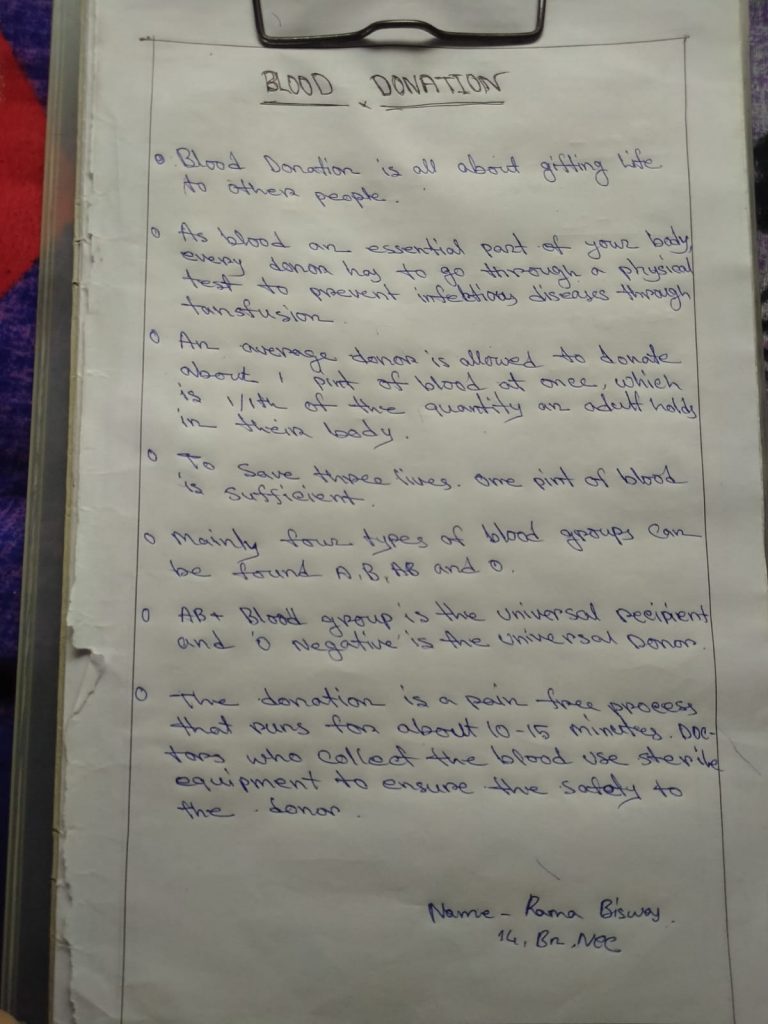 BLOOD x DONATION
Blood Donation is all about gifting life
to other people.
As blood an essential part of your body,
every donor has to go through a physical
test to prevent infectious diseases through
tansfusion.
An average donor is allowed to donate
about 1 pint of blood at once, which
is 1/1th of the quantity an adult holds
in their body.
To save three lives. one pint of blood
is sufficient.
Mainly four types of blood groups can
be found A, B, AB and O.
AB+ Blood group is the universal recipient
and 'O Negative' is the universal Donor.
The donation is a pain free process
that runs for about 10-15 minutes. Doc-
tors who collect the blood use sterile
equipment to ensure the safety to
the donor.
Name - Rama Biswas.
14, Bn, NCC